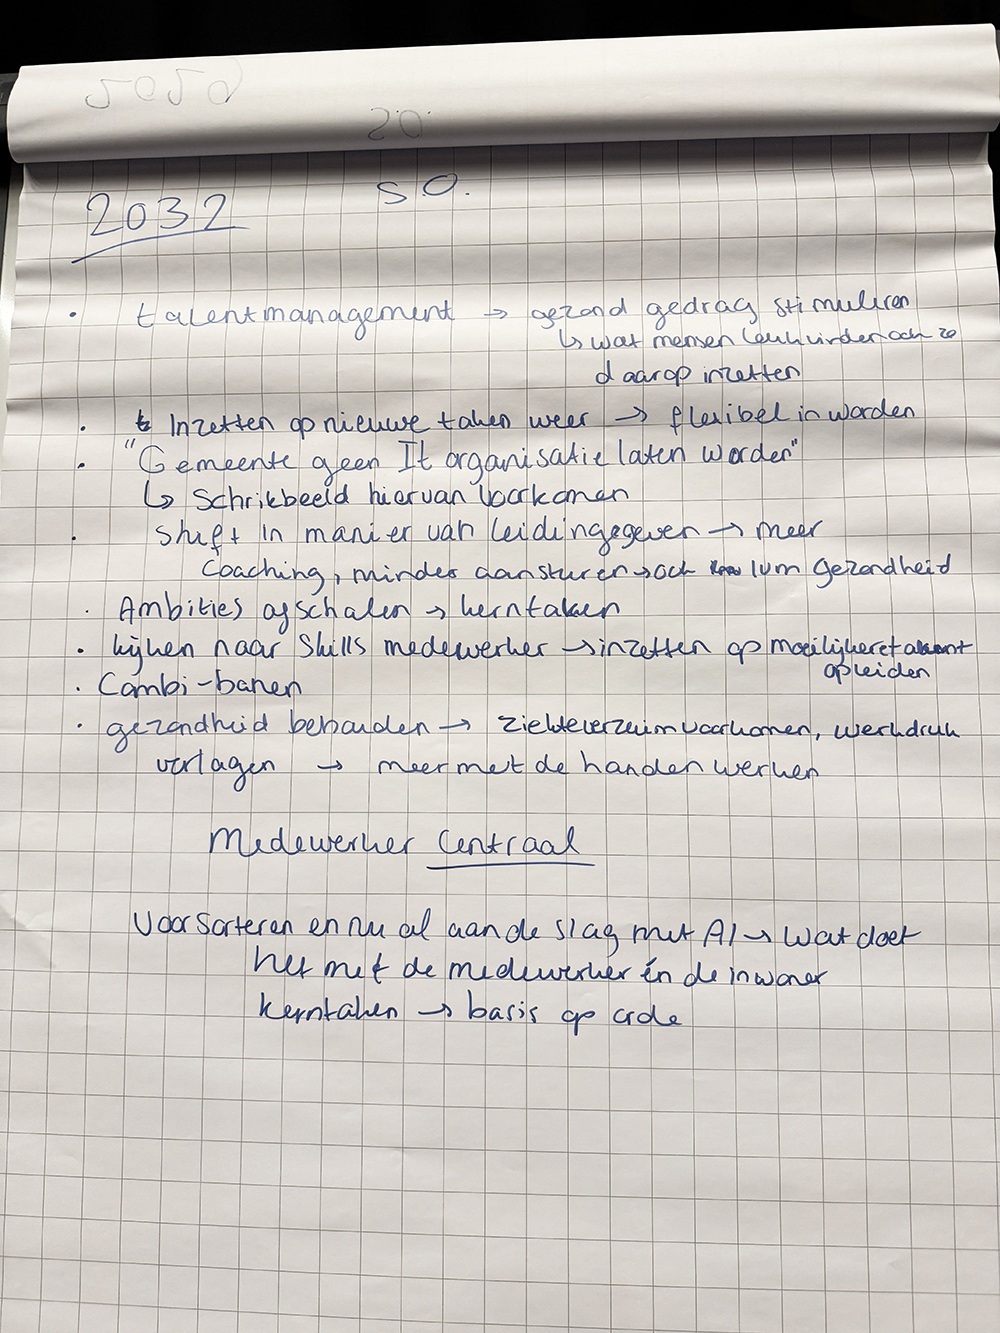 2032
S O.
• talentmanagement → gezond gedrag stimuleren
↳ wat mensen leuk vinden ook ze
daarop inzetten
• Inzetten op nieuwe taken weer → flexibel in worden
• "Gemeente geen It organisatie laten worden"
↳ Schrikbeeld hiervan voorkomen
• Shift in manier van leidinggegeven → meer
Coaching, minder aansturen → ook ivm gezondheid
• Ambities afschalen → kerntaken
• kijken naar Skills medewerker → inzetten op moeilijkere taken
opleiden
• Combi-banen
• gezondheid behouden → ziekteverzuim voorkomen, werkdruk
verlagen → meer met de handen werken
Medewerker Centraal
Voorsorteren en nu al aan de slag met AI → Wat doet
het met de medewerker én de inwoner
kerntaken → basis op orde